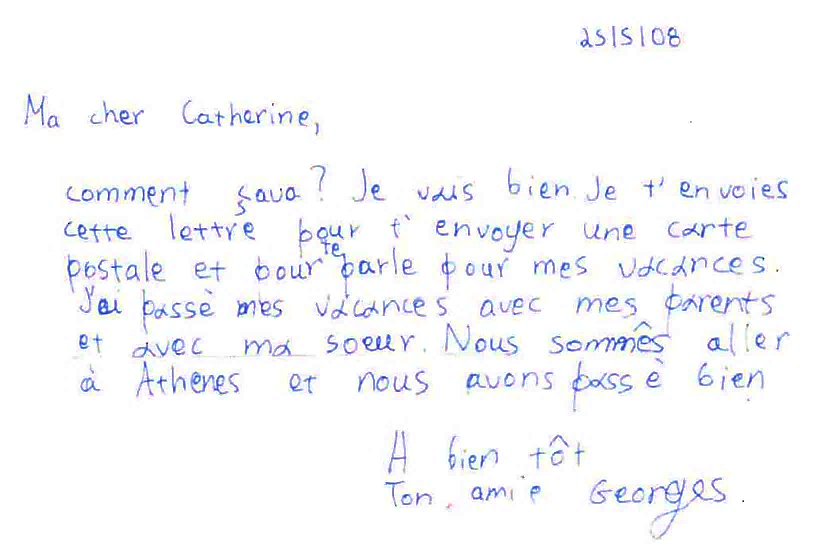 25/5/08
Ma cher Catherine,
comment şava? Je vais bien. Je t'envoies
cette lettre pour t'envoyer une carte
postale et pour te parle pour mes vacances.
J'ai passè mes vacances avec mes parents
et avec ma soeur. Nous sommês aller
à Athènes et nous avons passè bien
A bien tôt
Ton amie Georges.